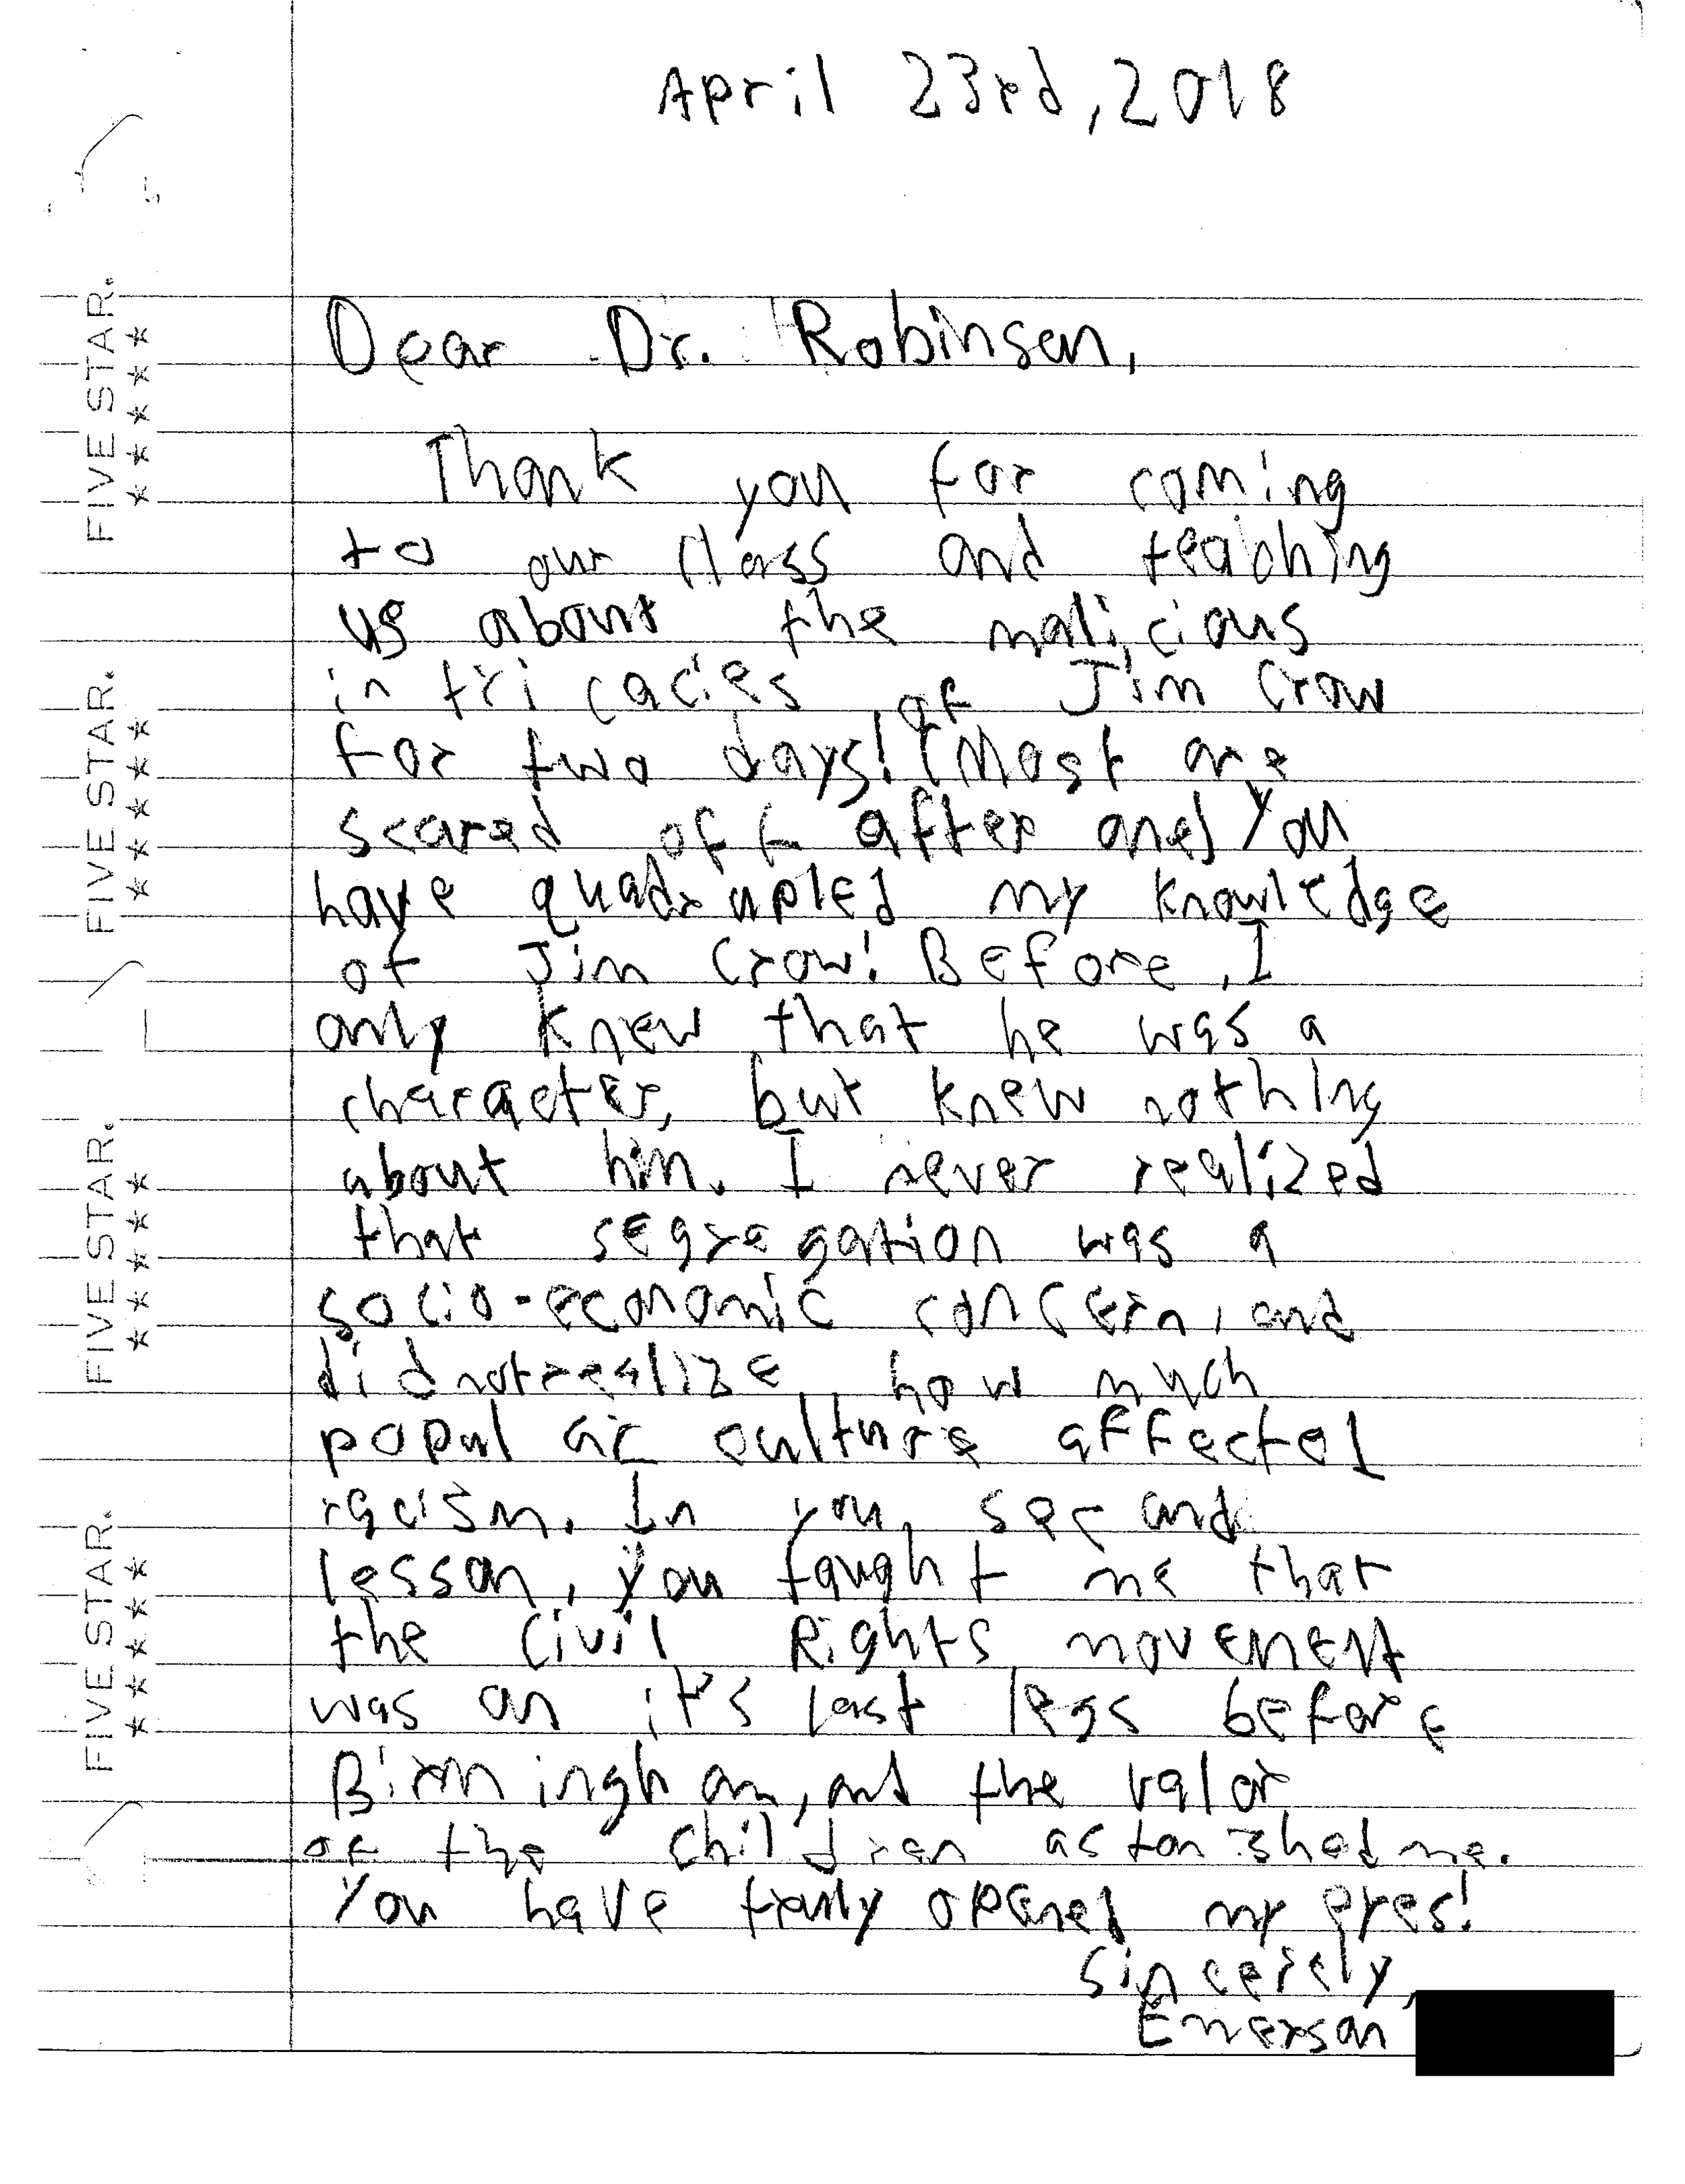 April 23rd, 2018
Dear Dr. Robinson,
Thank you for coming
to our class and teaching
us about the malicious
intricacies of Jim Crow
for two days! (Most are
scared off after one) You
have quadrupled my knowledge
of Jim Crow! Before, I
only knew that he was a
character, but knew nothing
about him. I never realized
that segregation was a
socio-economic concern, and
did not realize how much
popular culture affected
racism. In you second
lesson, you taught me that
the Civil Rights movement
was on it's last legs before
Birmingham, and the valor
of the children astonished me.
You have truly opened my eyes!
Sincerely,
Emerson
FIVE STAR.
★★★★★
FIVE STAR.
★★★★★
FIVE STAR.
★★★★★
FIVE STAR.
★★★★★